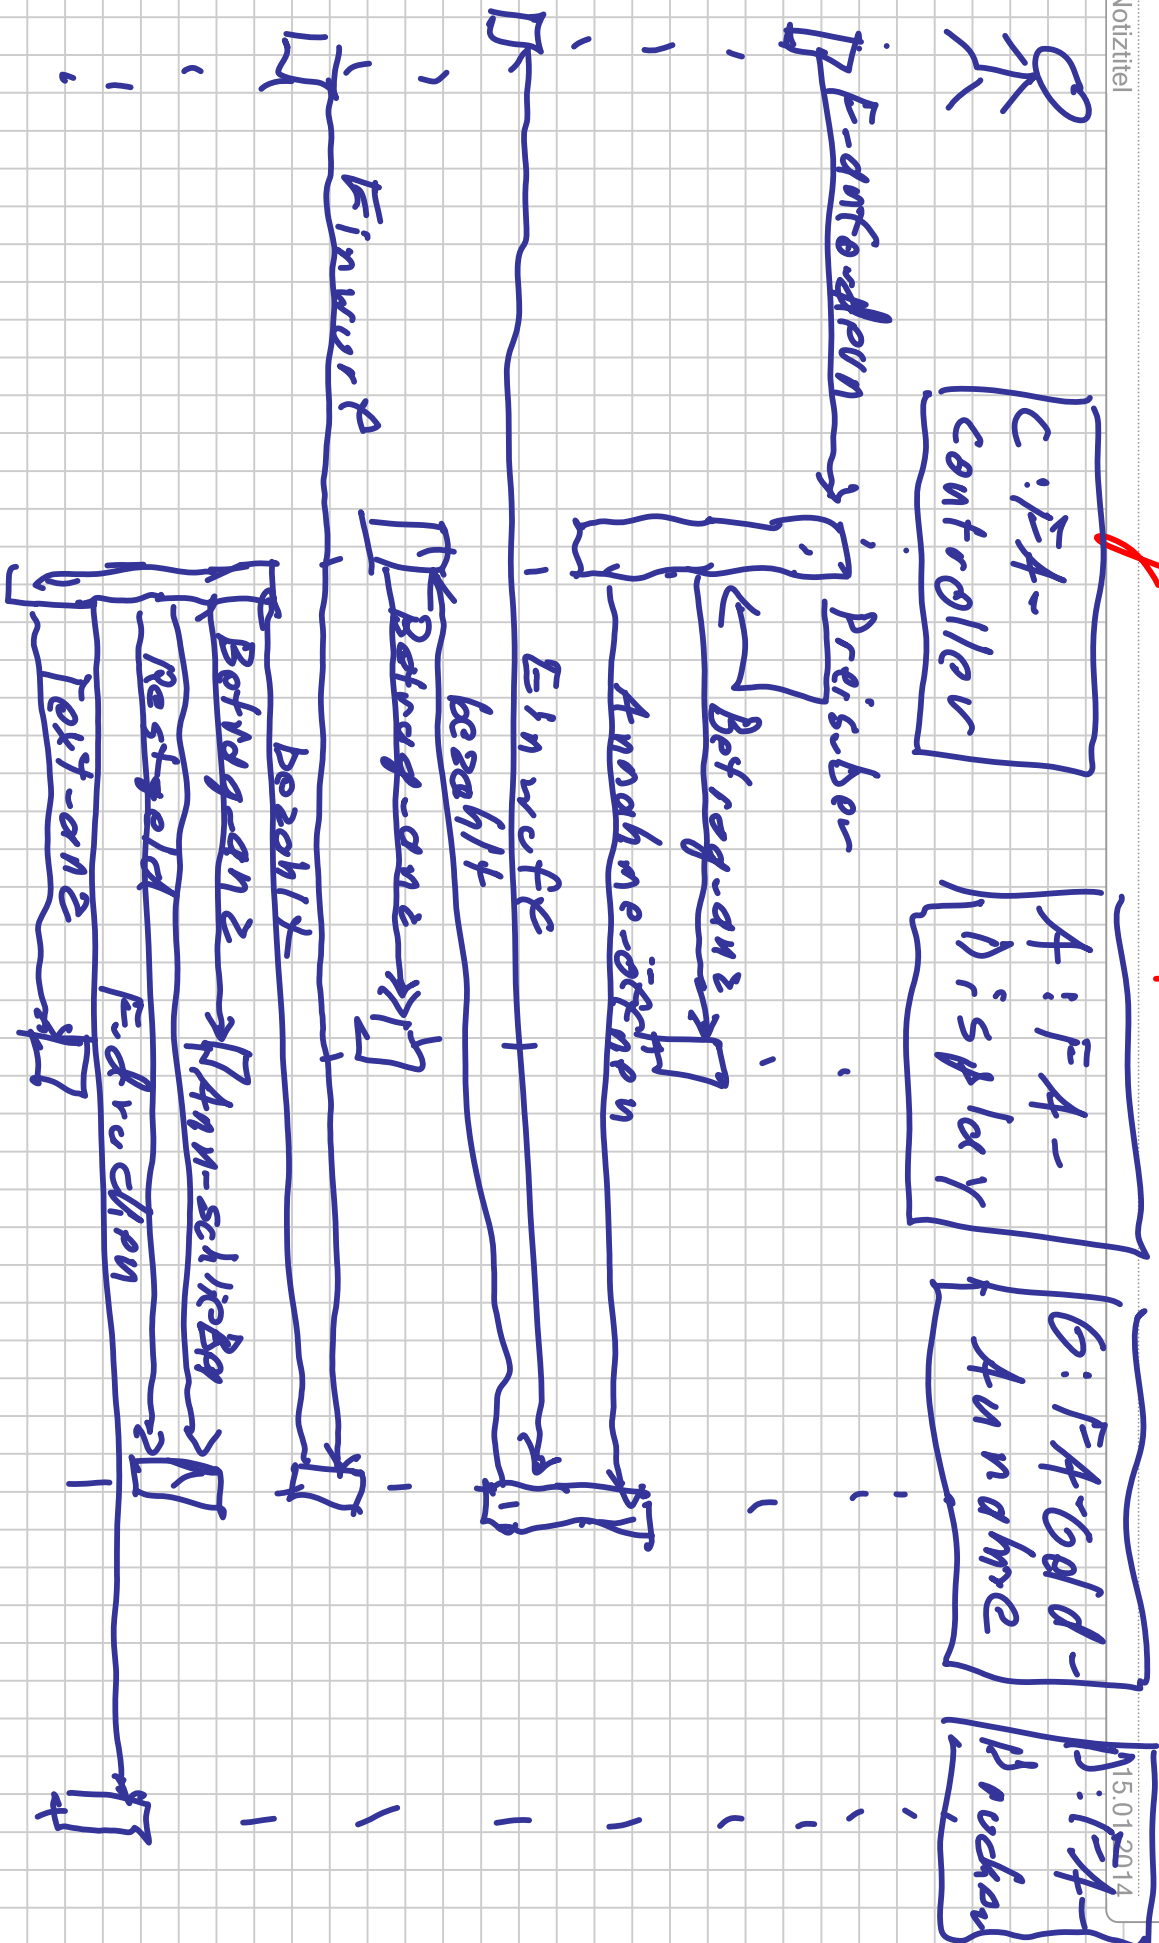 Notiztitel
15.01.2014
C:FA-
Controller
A:FA-
Display
G:FA-Geld-
Annahme
D:FA-
Drucker
F-anfordern
Preis-ber
Betrag-anz
Annahme-öffnen
Einwurf
bezahlt
Betrag-anz
Einwurf
bezahlt
Betrag-anz
Ann-schließen
Restgeld
F-drucken
Text-anz